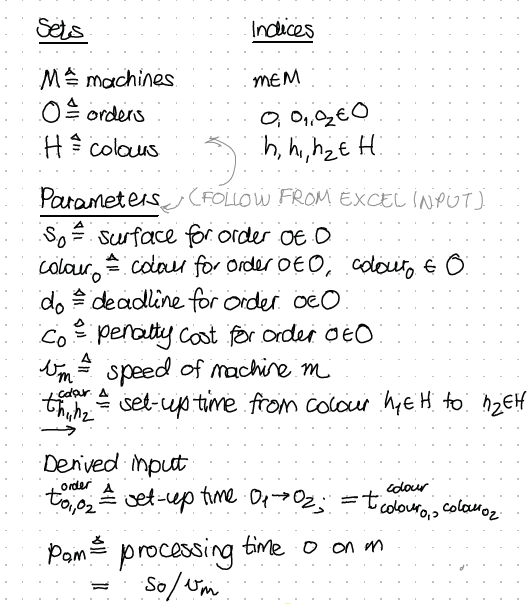 Sets Indices
M ≙ machines m∈M
O ≙ orders o, o₁,o₂∈O
H ≙ colours h, h₁,h₂∈H
Parameters (FOLLOW FROM EXCEL INPUT)
s₀ ≙ surface for order o∈O
colour₀ ≙ colour for order o∈O, colour₀ ∈ O
d₀ ≙ deadline for order o∈O
c₀ ≙ penalty cost for order o∈O
vₘ ≙ speed of machine m
t^colour_h₁,h₂ ≙ set-up time from colour h₁∈H to h₂∈H
Derived input
t^order_o₁,o₂ ≙ set-up time o₁→o₂; = t^colour_colour_o₁, colour_o₂
p_om ≙ processing time o on m
= s₀/vₘ